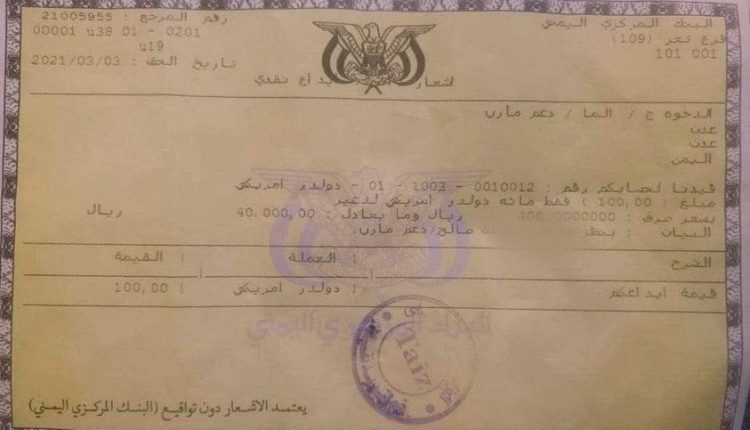 البنك المركزي اليمني
فرع تعز (109)
101 001
رقم المرجع : 21005955
00001 u38 01 - 0201
u19
تاريخ الحق : 2021/03/03
اشعار ايداع نقدي
الاخوه ج / الما / دعم مأرب
عدن
عدن
اليمن
قيدنا لحسابكم رقم : 0010012 - 1003 - 01 - دولار امريكي
مبلغ (100,00) فقط مائه دولار امريكي لاغير
بسعر صرف : 400.0000000 ريال وما يعادل : 40,000,00 ريال
البيان : صالح/دعم مأرب.
الشرح العملة القيمة
قيمة ايداعكم دولار امريكي 100,00
Taiz
يعتمد الاشعار دون تواقيع (البنك المركزي اليمني)